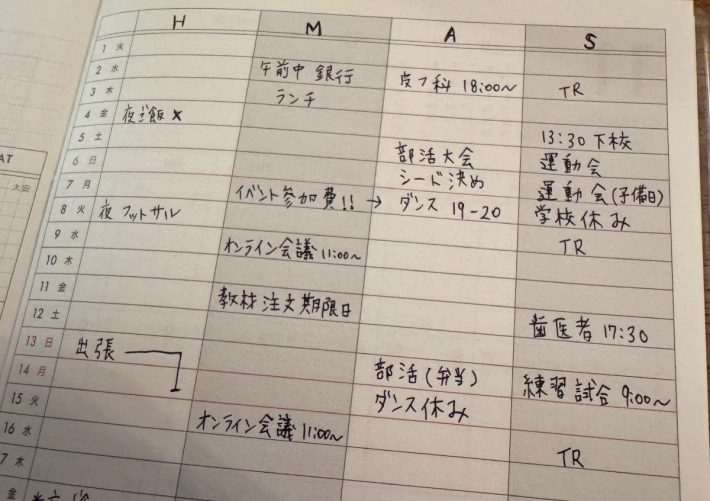 H M A S
1 火
2 水 午前中 銀行 皮フ科 18:00〜 TR
3 木 ランチ
4 金 夜ご飯 × 13:30 下校
5 土 部活大会 運動会
6 日 シード決め 運動会(予備日)
7 月 イベント参加費!! → ダンス 19-20 学校休み
8 火 夜 フットサル TR
9 水 オンライン会議 11:00〜
10 木
11 金 教材注文期限日
12 土 歯医者 17:30
13 日 出張
14 月 部活(弁当) 練習試合 9:00〜
15 火 ダンス休み
16 水 オンライン会議 11:00〜 TR
7 木
金
AT
大安